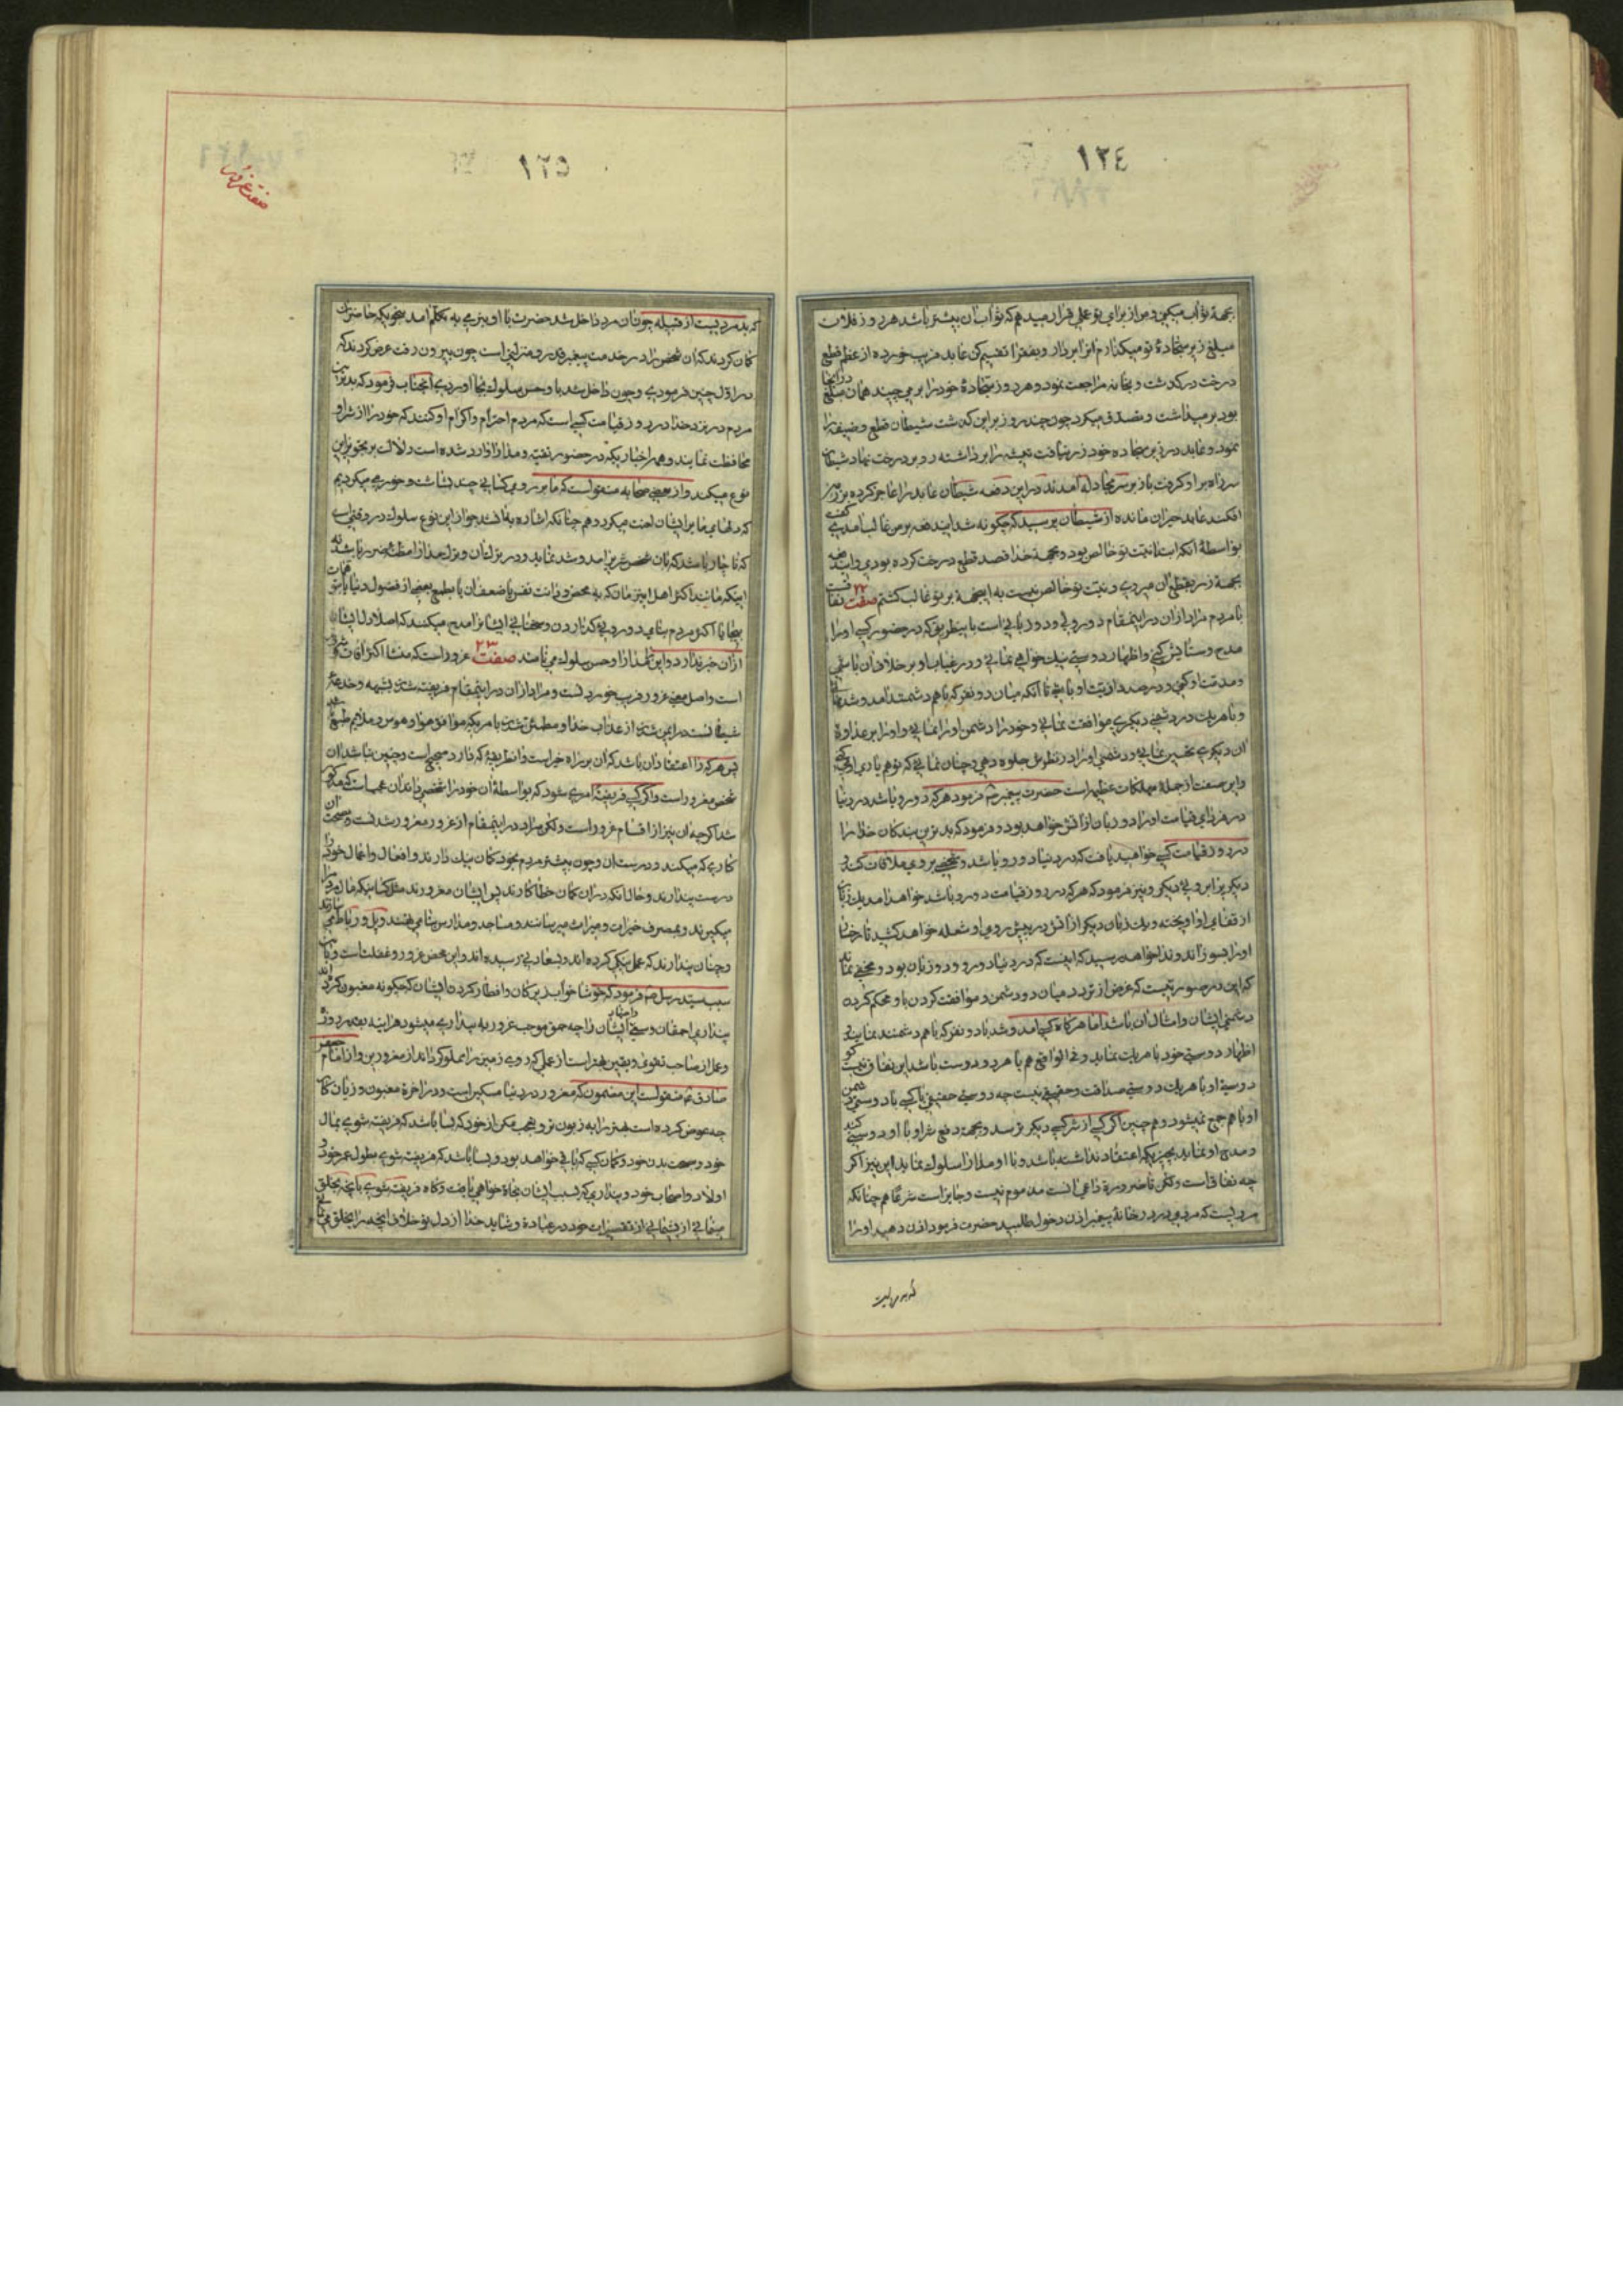 ١٢٤
بجهة ثواب میکنی و من از برای تو عملی قرار میدهم که ثواب آن بیشتر باشد هر روز فلان
مبلغ زیر سجاده تو میگذارم آنرا بردار و بفقرا تقسیم کن عابد فریب خورده از عزم قطع
درخت درگذشت و بخانه مراجعت نمود و هر روز سجادهٔ خود را بر می چید همان مبلغ در آنجا
بود بر میداشت و تصدق میکرد چون چند روز بر این گذشت شیطان قطع وظیفه را
نمود و عابد در زیر سجاده خود زر نیافت تیشه را برداشته رو بدرخت نهاد شیطان
سر راه بر او گرفت باز بر سر مجادله آمدند در این دفعه شیطان عابد را عاجز کرده بر زمین
افکند عابد حیران مانده از شیطان پرسید که چگونه شد ایندفعه بر من غالب آمدی گفت
بواسطهٔ آنکه ابتدا نیت تو خالص بود و بجهة خدا قصد قطع درخت کرده بودی و ایندفعه
بجهة زر بقطع آن میروی و نیت تو خالص نیست به اینجهة بر تو غالب گشتم صفت ٢٢ نفاق است
با مردم مراد از آن در اینمقام دو روئی و دو زبانی است باینطریق که در حضور کسی او را
مدح و ستایش کنی و اظهار دوستی و نیک خواهی نمائی و در غیاب او بر خلاف آن باشی
و مذمت او کنی و در صدد اذیت او باشی یا آنکه میان دو نفر که باهم دشمنند آمد و شد نمائی
و با هر یک در دشمنی دیگری موافقت نمائی و خود را دشمن او وانمائی و او را بر عداوة
آن دیگری تحسین نمائی و دشمنی او را در نظرش جلوه دهی و چنان نمائی که تو هم یاری او میکنی
و این صفت از جملهٔ مهلکات عظیمه است حضرت پیغمبر ص فرمود هر که دو رو باشد در دنیا
در فردای قیامت او را دو زبان از آتش خواهد بود و فرمود که بدترین بندگان خدا را
در روز قیامت کسی خواهید یافت که در دنیا دو رو باشد و شخصی بروی ملاقات کند و
دیگر برا بروئی دیگر و نیز فرمود که هر که در روز قیامت دو رو باشد خواهد آمد یک زبان
از قفای او آویخته و یک زبان دیگر از آتش در پیش روی او شعله خواهد کشید تا رخسار
او را بسوزاند و ندا خواهد رسید که اینست که در دنیا دو رو و دو زبان بود و مخفی نماند
که این در صورتیست که غرض از تردد میان دو دشمن و موافقت کردن با او محکم کردن
دشمنی ایشان و امثال آن باشد اما هرگاه کسی آمد و شد با دو نفر که باهم دشمنند نماید و
اظهار دوستی خود با هر یک نماید و فی الواقع هم با هر دو دوست باشد این نفاق نیست گو
دوستی او با هر یک دوستی صداقت و حقیقی نیست چه دوستی حقیقی با کسی با دوستی دشمن
او باهم جمع نمیشود و هم چنین اگر کسی از شر کسی دیگر بترسد و بجهت دفع شر او با او دوستی کند
و مدح او نماید بچیزیکه اعتقاد نداشته باشد و با او مدارا سلوک نماید این نیز اگر
چه نفاق است ولکن تا ضرورة داعی آنست مذموم نیست و جایز است شرعا هم چنانکه
مرویست که مردی در در خانهٔ پیغمبر اذن دخول طلبید حضرت فرمود اذن دهید او را
که بد مردیست
١٢٥
صفت غرور
که بد مردیست از قبیله چون آن مرد داخل شد حضرت با او بنرمی به تکلم آمد بنحویکه حاضران
گمان کردند که آن شخص را در خدمت پیغمبر قدر و منزلتی است چون بیرون رفت عرض کردند که
در اول چنین فرمودی و چون داخل شد با او حسن سلوک بجا آوردی آنجناب فرمود که بدترین
مردم در نزد خدا در روز قیامت کسی است که مردم احترام و اکرام او کنند که خود را از شر او
محافظت نمایند و همه اخباریکه در خصوص تقیه و مدارا وارد شده است دلالت بر تجویز این
نوع میکند و از بعضی صحابه منقولست که ما بر روی کسانی چند بشاشت و خورمی میکردیم
که دلهای ما بر ایشان لعنت میکرد و هم چنانکه اشاره به آن شد جواز این نوع سلوک در وقتی است
که ناچار باشد که با آن شخص شریر آمد و شد نماید و در ترک آن و ترک مدارا مظنهٔ ضرر باشد نه
اینکه مانند اکثر اهل این زمان که به محض دنائت نفس یا ضعف آن یا بطمع بعضی از فضول دنیا یا توقعات
بیجا با اکثر مردم بنای دو روئی گذارند و سخنانی ایشان را مدح میکنند که اصلا دل ایشان
از آن خبر ندارد و این را مدارا و حسن سلوک می نامند صفت ٢٣ غرور است که منشا اکثر آفات و شرور
است و اصل معنی غرور فریب خوردنست و مراد از آن در اینمقام فریفته شدن بشبهه و خدعهٔ
شیطانست در ایمن شدن از عذاب خدا و مطمئن شدن بامریکه موافق هوا و هوس و ملایم طبع باشد
پس هر که را اعتقاد آن باشد که آن بر راه خیر است و آنطریقهٔ که دارد صحیح است و چنین نباشد آن
شخص مغرور است و اگر کسی فریفتهٔ امری شود که بواسطهٔ آن خود را شخصی داند آن عجب است که مذکور
شد اگر چه آن نیز از اقسام غرور است ولکن مراد در اینمقام از غرور مغرور شدنست به صحت آن
کاری که میکند و درستی آن و چون بیشتر مردم بخود گمان نیک دارند و افعال و اعمال خود را
درست پندارند و حال آنکه در آن گمان خطا کارند پس ایشان مغرورند مثل کسانیکه مال مردم را
میگیرند و بمصرف خیرات و مبرات میرسانند و مساجد و مدارس بنا می نهند و پل و رباط می سازند
و چنان پندارند که عمل نیکی کرده اند و بسعادتی رسیده اند و این محض غرور و غفلت است و باین
سبب سید رسل ص فرمود که خوشا خواب زیرکان و افطار کردن ایشان که چگونه مغبون کرده اند
بیداری احمقان و سعی ایشان را چه حمق موجب غرور به بیداری میشود هر آینه بقدر ذرهٔ
و عمل از صاحب تقوی و یقین بهتر است از عملی که روی زمین را مملو گرداند از مغرورین و از امام جعفر
صادق ع منقولست این مضمون که مغرور در دنیا مسکین است و در آخرة مغبون و زیان کار
چه عوض کرده است بهتر را به زبون تر و تعجب مکن از خود که بسا باشد که فریفته شوی بمال
خود و صحت بدن خود و گمان کنی که باقی خواهد بود و بسا باشد که فریفته شوی بطول عمر خود و
اولاد و اصحاب خود و پنداری که بسبب ایشان نجاة خواهی یافت و گاه فریفته شوی بآنچه بخلق
مینمائی از پشیمانی از تقصیرات خود در عبادة و شاید خدا از دل تو خلاف آنچه را بخلق می نمائی